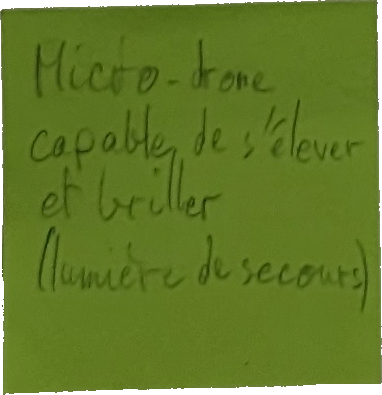 Micro-drone
capable de s'élever
et briller
(lumière de secours)